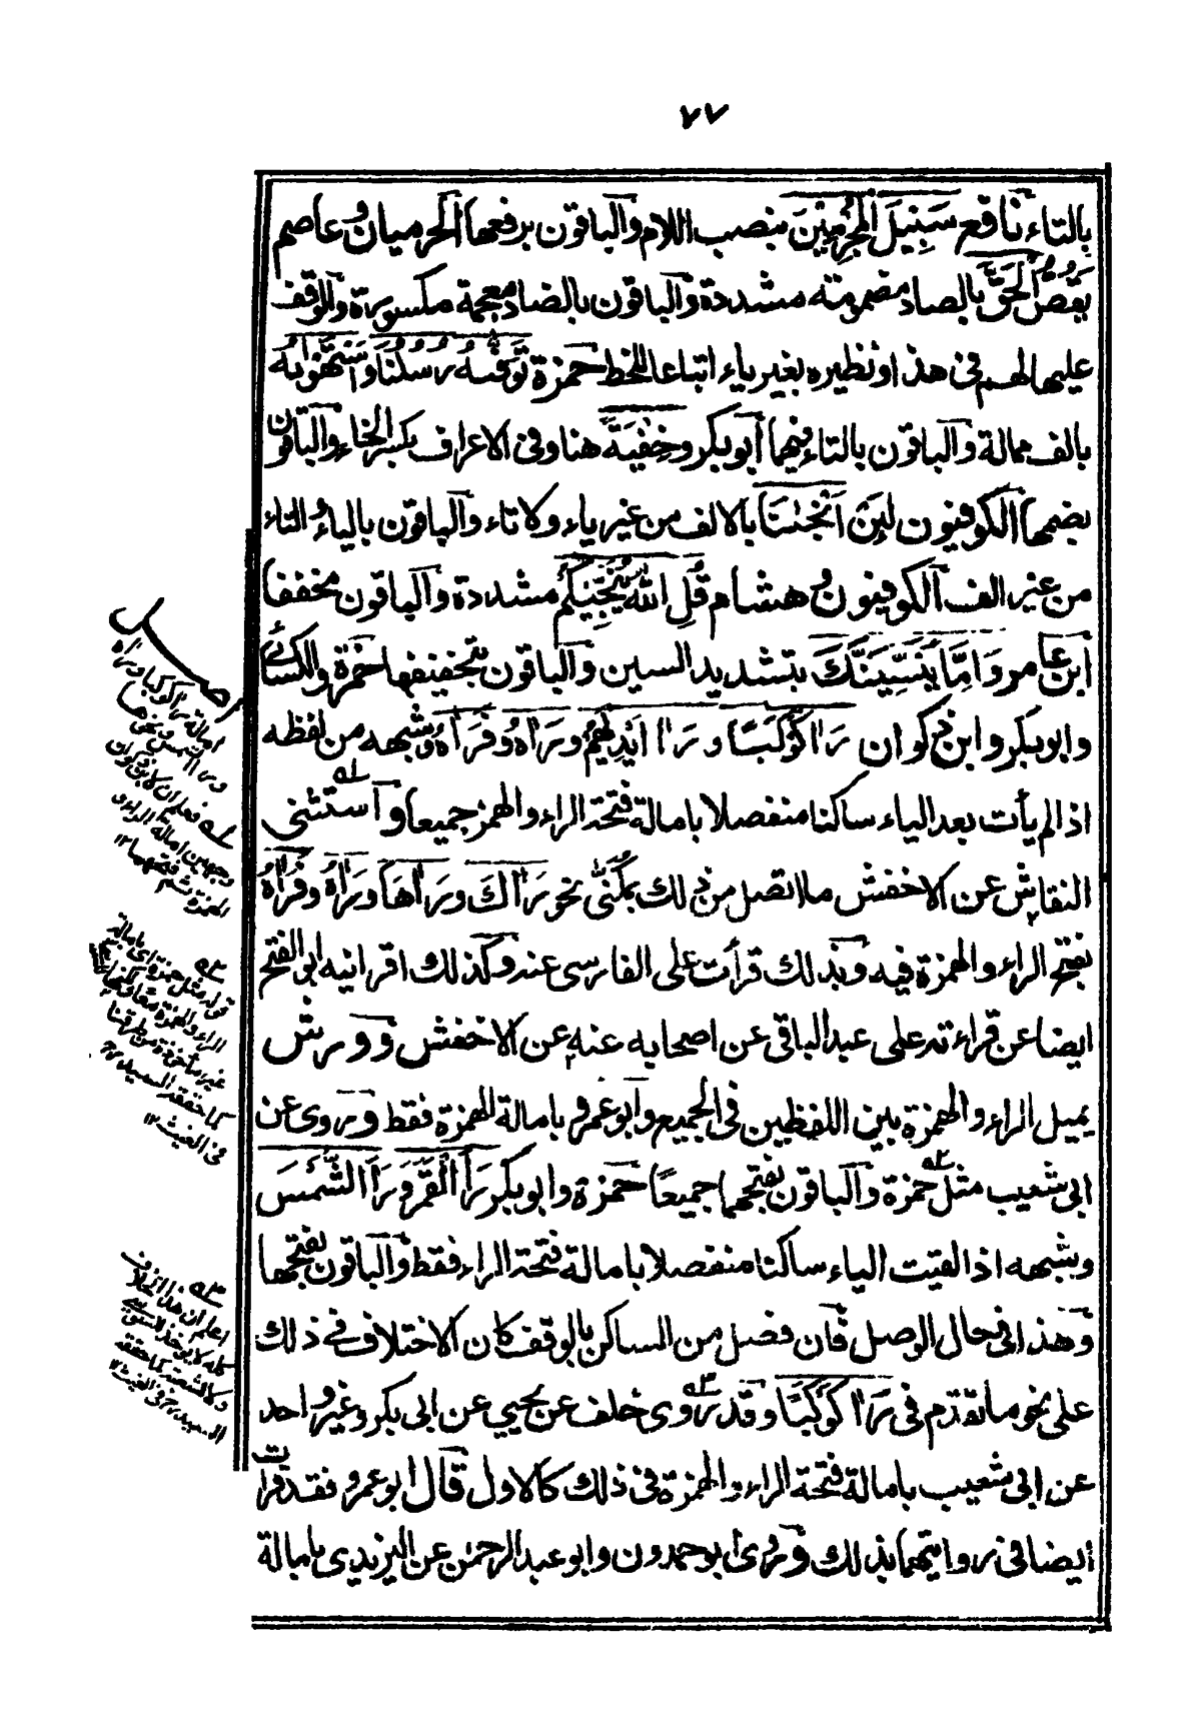 ٧٧
بالتاء نافع سَبِيلَ الْمُجْرِمِينَ بنصب اللام والباقون برفعها الحرميان وعاصم
يَقُصُّ الْحَقَّ بالصاد مضمومة مشددة والباقون بالضاد معجمة مكسورة والوقف
عليها لهم فى هذا ونظيره بغير ياء اتباعا للخط حمزة تَوَفّٰىهُ رُسُلُنَا وَاسْتَهْوٰىهُ
بالف ممالة والباقون بالتاء فيهما أبو بكر وخِفْيَةً هنا وفى الاعراف بكسر الخاء والباقون
بضمها الكوفيون لَئِنْ أَنْجٰىنَا بالالف من غير ياء ولا تاء والباقون بالياء والتاء
من غير الف الكوفيون وهشام قُلِ اللّٰهُ يُنَجِّيكُمْ مشددة والباقون مخففا
ابن عامر وَإِمَّا يُنَسِّيَنَّكَ بتشديد السين والباقون بتخفيفها حمزة والكسائى
وابو بكر وابن ذكوان رَاٰ كَوْكَبًا و رَاٰ اَيْدِيَهُمْ ورَاٰهُ وفَرَاٰهُ وشبهه من لفظه
اذا لم يأت بعد الياء ساكنا منفصلا بامالة فتحة الراء والهمز جميعا واستثنى
النقاش عن الاخفش ما اتصل من ذلك بمكنى نحو رَاٰكَ ورَاٰهَا ورَاٰهُ وفَرَاٰهُ
بفتح الراء والهمزة فيه وبذلك قرأت على الفارسى عنه وكذلك اقرانيه ابى الفتح
ايضا عن قراءته على عبد الباقى عن اصحابه عنه عن الاخفش وورش
يميل الراء والهمزة بين اللفظين فى الجميع وأبو عمرو بامالة الهمزة فقط وروى عن
ابى شعيب مثل حمزة والباقون بفتحهما جميعًا حمزة وابو بكر رَاَ الْقَمَرَ ورَاَ الشَّمْسَ
وشبهه اذا لقيت الياء ساكنا منفصلا بامالة فتحة الراء فقط والباقون بفتحها
وهذا فى حال الوصل فان فصل من الساكن بالوقف كان الاختلاف فى ذلك
على نحو ما تقدم فى رَاٰ كَوْكَبًا وقد روى خلف عن يحيى عن ابى بكر وغير واحد
عن ابى شعيب بامالة فتحة الراء والهمزة فى ذلك كالاول قال ابو عمرو فقد قرأت
ايضا فى روايتهما بذلك وروى ابو حمدون وابو عبد الرحمٰن عن اليزيدى بامالة
امالة راٰ كوكبا وراٰه
ورا الشمس ونحوها
له فعلم ان لابن ذكوان
وجهين امالة الراء و
الهمزة ثم فتحهما ١٢
٢ه
قوله مثل حمزة اى بامالة
الراء والهمزة معا
غير مأخوذة من طرقنا
كما حققه السيد
فى الغيث ١٢
٣ه
اعلم أن هذا الخلاف
كله لا يؤخذ
كما حققه
السيد فى الغيث ١٢